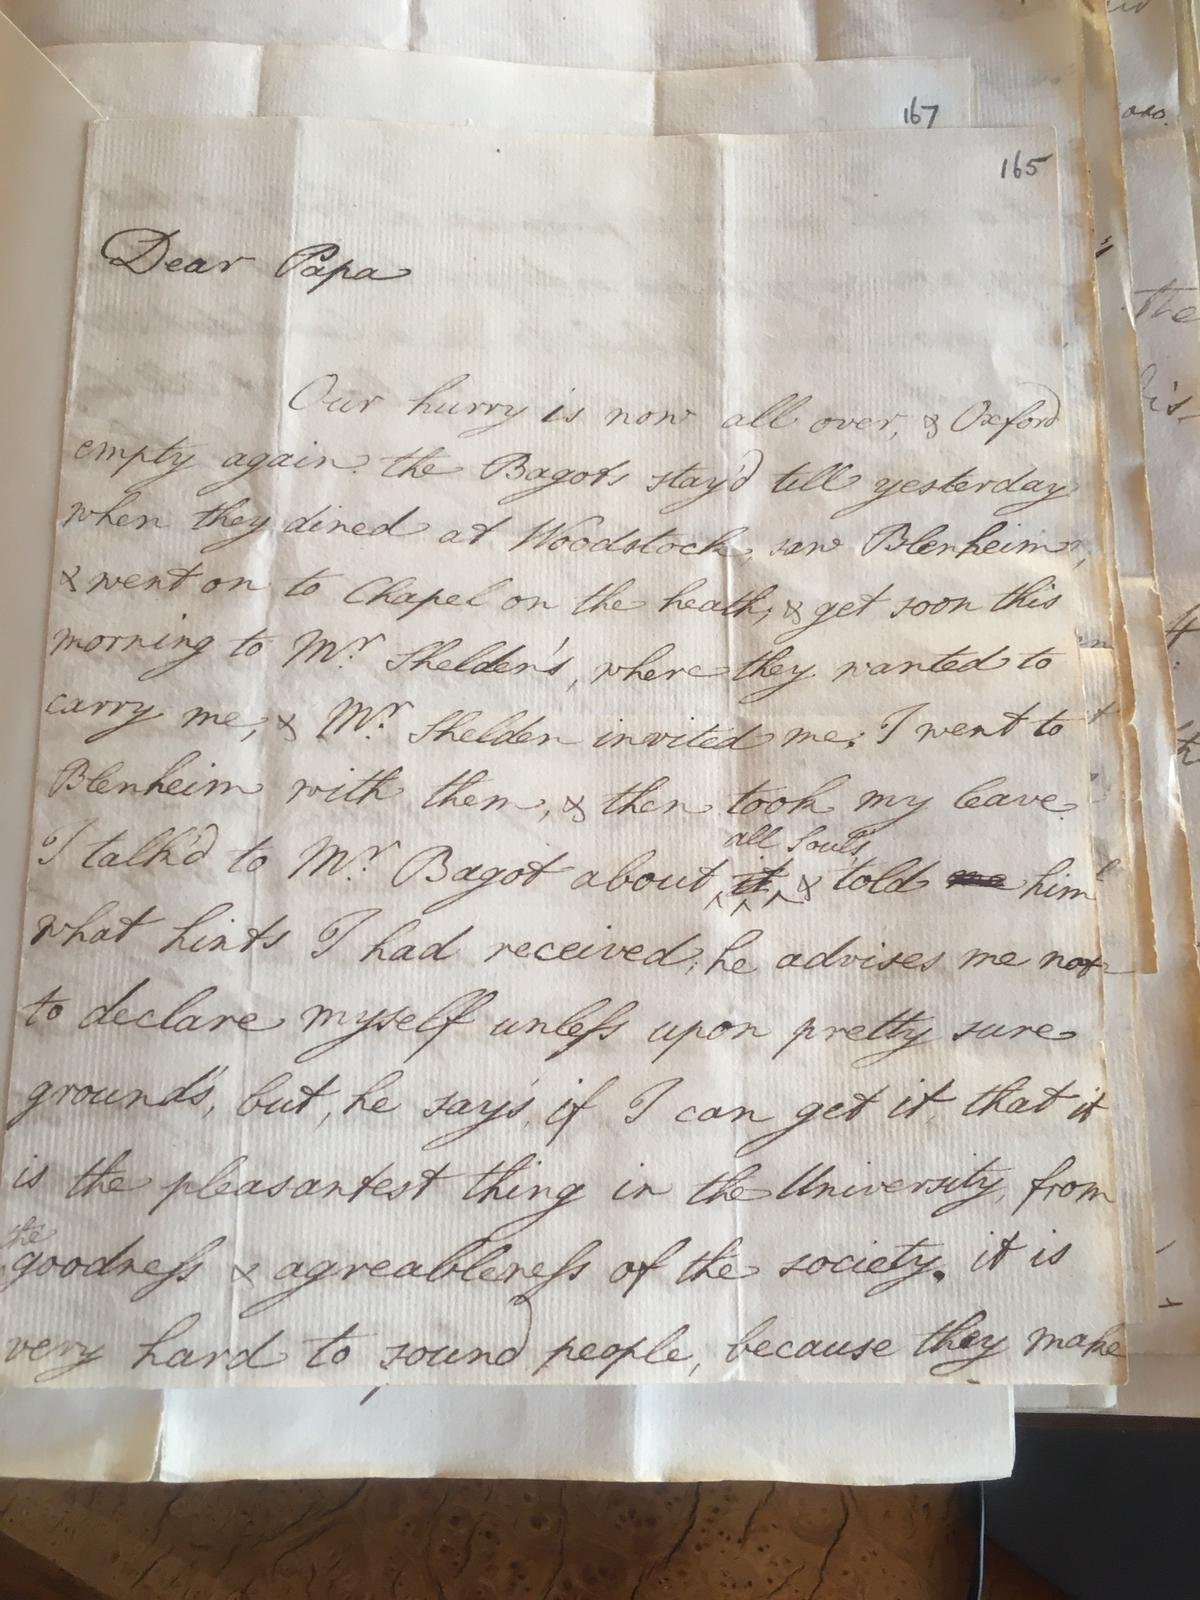 167
165
Dear Papa
Our hurry is now all over, & Oxford
empty again. the Bagots stay'd till yesterday
when they dined at Woodstock, saw Blenheim,
& went on to Chapel on the heath, & get soon this
morning to Mr. Shelden's, where they wanted to
carry me, & Mr. Shelden invited me; I went to
Blenheim with them, & then took my leave.
all Souls
I talk'd to Mr. Bagot about it, & told me him
what hints I had received, he advises me not
to declare myself unleſs upon pretty sure
grounds, but, he says, if I can get it, that it
is the pleasantest thing in the University, from
the
goodneſs & agreableneſs of the society. it is
very hard to sound people, because they make